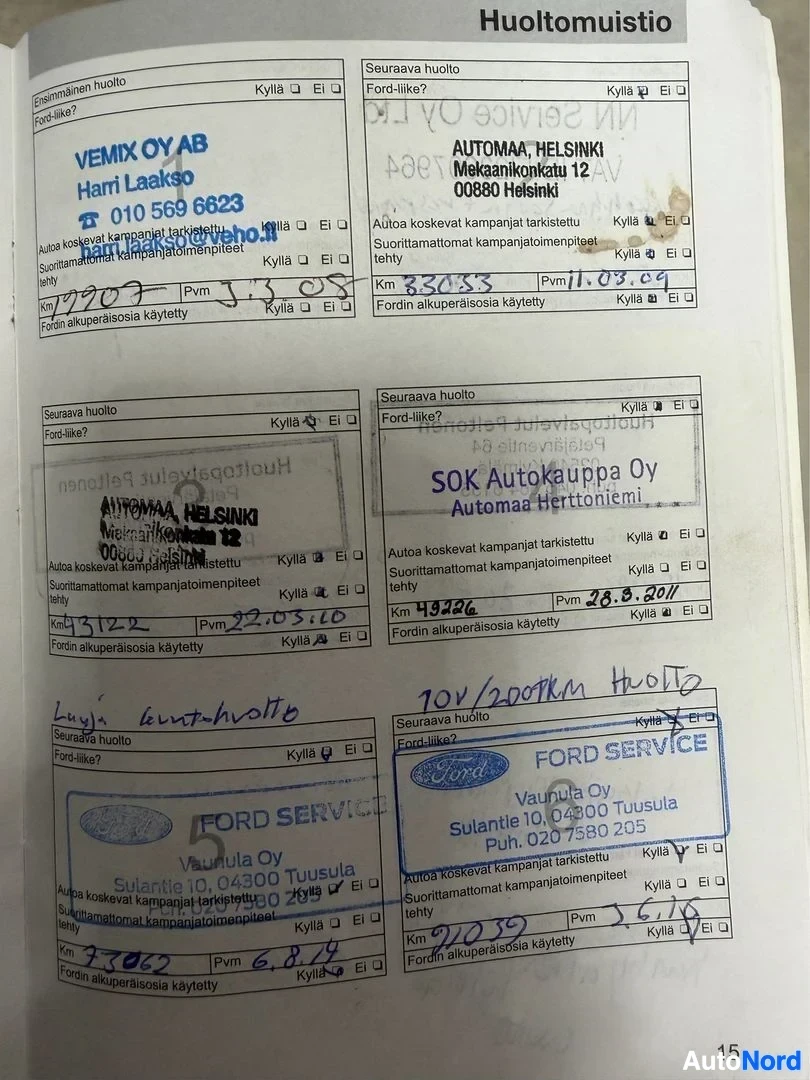 Huoltomuistio
Ensimmäinen huolto
Ford-liike? Kyllä Ei
VEMIX OY AB
Harri Laakso
☎ 010 569 6623
harri.laakso@veho.fi
Autoa koskevat kampanjat tarkistettu Kyllä Ei
Suorittamattomat kampanjatoimenpiteet
tehty Kyllä Ei
Km 19907 Pvm 3.3.08
Fordin alkuperäisosia käytetty Kyllä Ei
Seuraava huolto
Ford-liike? Kyllä Ei
AUTOMAA, HELSINKI
Mekaanikonkatu 12
00880 Helsinki
Autoa koskevat kampanjat tarkistettu Kyllä Ei
Suorittamattomat kampanjatoimenpiteet
tehty Kyllä Ei
Km 33033 Pvm 11.03.09
Fordin alkuperäisosia käytetty Kyllä Ei
Seuraava huolto
Ford-liike? Kyllä Ei
3
AUTOMAA, HELSINKI
Mekaanikonkatu 12
00880 Helsinki
Autoa koskevat kampanjat tarkistettu Kyllä Ei
Suorittamattomat kampanjatoimenpiteet
tehty Kyllä Ei
Km 43122 Pvm 22.03.10
Fordin alkuperäisosia käytetty Kyllä Ei
Seuraava huolto
Ford-liike? Kyllä Ei
4
SOK Autokauppa Oy
Automaa Herttoniemi
Autoa koskevat kampanjat tarkistettu Kyllä Ei
Suorittamattomat kampanjatoimenpiteet
tehty Kyllä Ei
Km 49226 Pvm 28.3.2011
Fordin alkuperäisosia käytetty Kyllä Ei
Laaja kuntohuolto
Seuraava huolto
Ford-liike? Kyllä Ei
5
Ford FORD SERVICE
Vaunula Oy
Sulantie 10, 04300 Tuusula
Puh. 020 7580 205
Autoa koskevat kampanjat tarkistettu Kyllä Ei
Suorittamattomat kampanjatoimenpiteet
tehty Kyllä Ei
Km 73062 Pvm 6.8.14
Fordin alkuperäisosia käytetty Kyllä Ei
10V/200TKM HUOLTO
Seuraava huolto Kyllä Ei
Ford-liike?
6
Ford FORD SERVICE
Vaunula Oy
Sulantie 10, 04300 Tuusula
Puh. 020 7580 205
Autoa koskevat kampanjat tarkistettu Kyllä Ei
Suorittamattomat kampanjatoimenpiteet
tehty Kyllä Ei
Km 91039 Pvm 3.6.16
Fordin alkuperäisosia käytetty Kyllä Ei
15
AutoNord